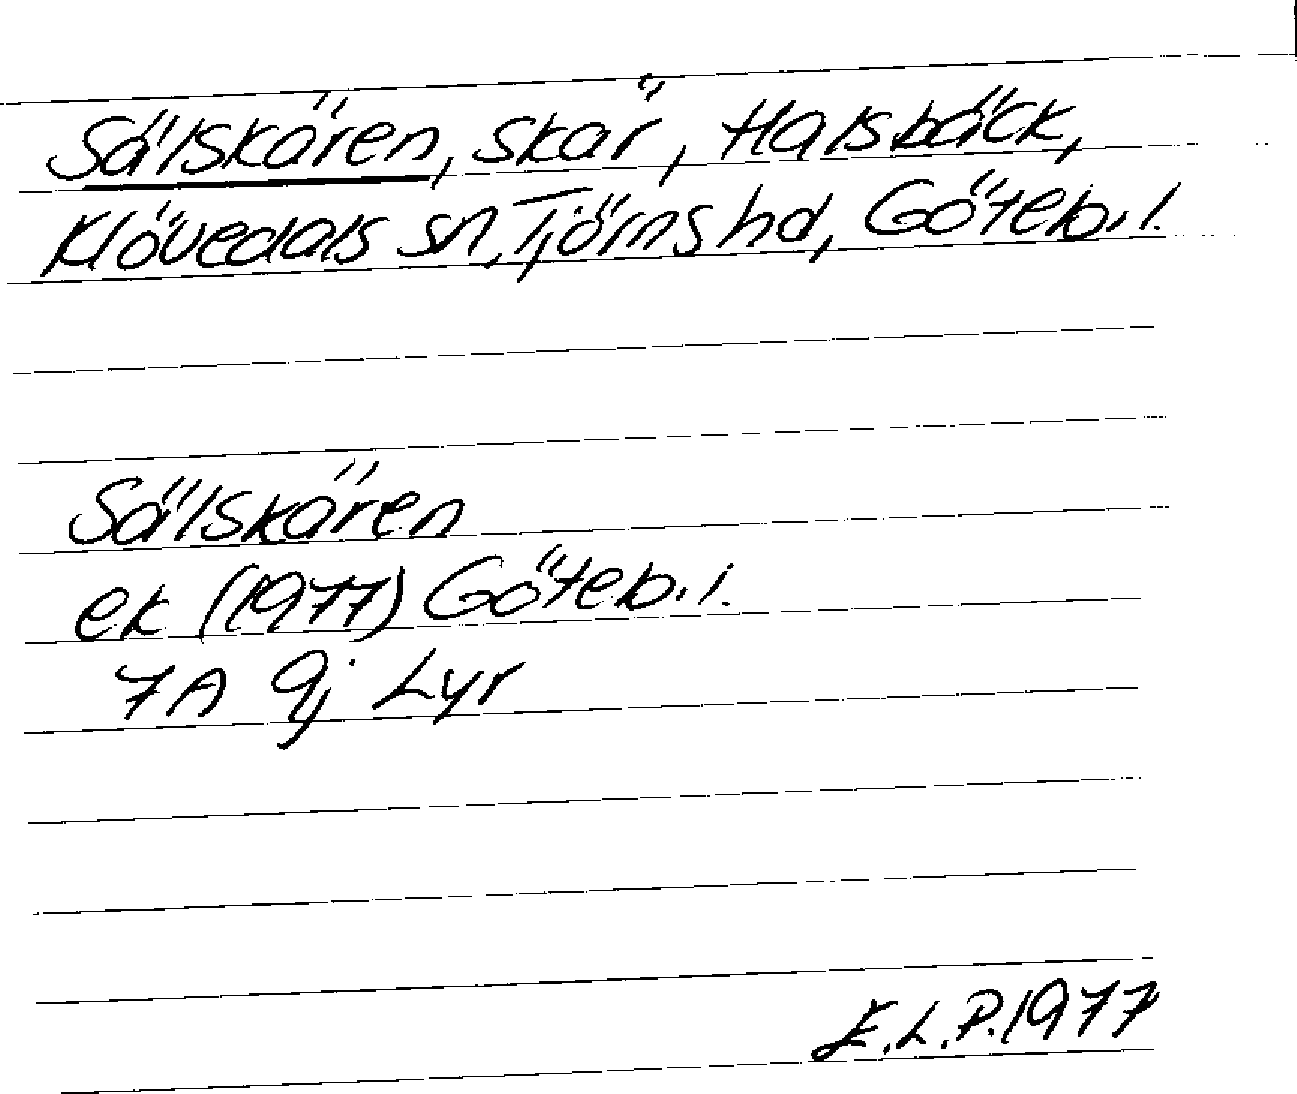 Sälskären, skär, Halsbäck,
Klövedals sn, Tjörns hd, Göteb. l.
Sälskären
ek (1977) Göteb. l.
7A 9j Lyr
E.L.P. 1977